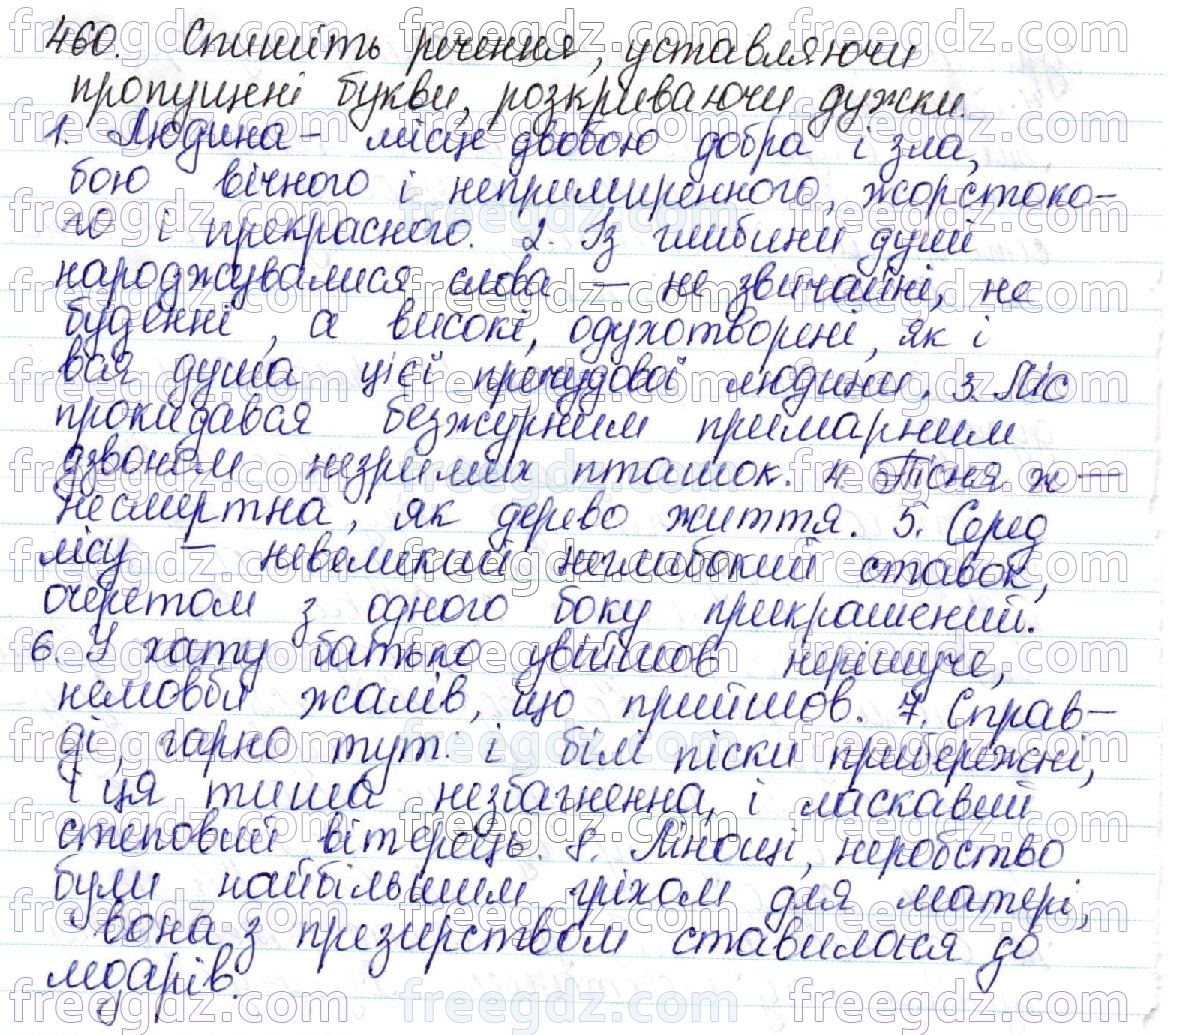 460. Спишіть речення, уставляючи
пропущені букви, розкриваючи дужки.
1. Людина – місце двобою добра і зла,
бою вічного і непримиренного, жорстоко-
го і прекрасного. 2. Із глибини душі
народжувалися слова – не звичайні, не
буденні, а високі, одухотворені, як і
вся душа цієї пречудової людини. 3. Ліс
прокидався безжурним примарним
дзвоном незримих пташок. 4. Пісня ж –
несмертна, як дерево життя. 5. Серед
лісу – невеликий неглибокий ставок,
очеретом з одного боку прикрашений.
6. У хату батько увійшов нерішуче,
немовби жалів, що прийшов. 7. Справ-
ді, гарно тут: і білі піски прибережні,
і ця тиша незбагненна, і ласкавий
степовий вітерець. 8. Лінощі, неробство
були найбільшим гріхом для матері,
вона з презирством ставилася до
ледарів.
freegdz.com